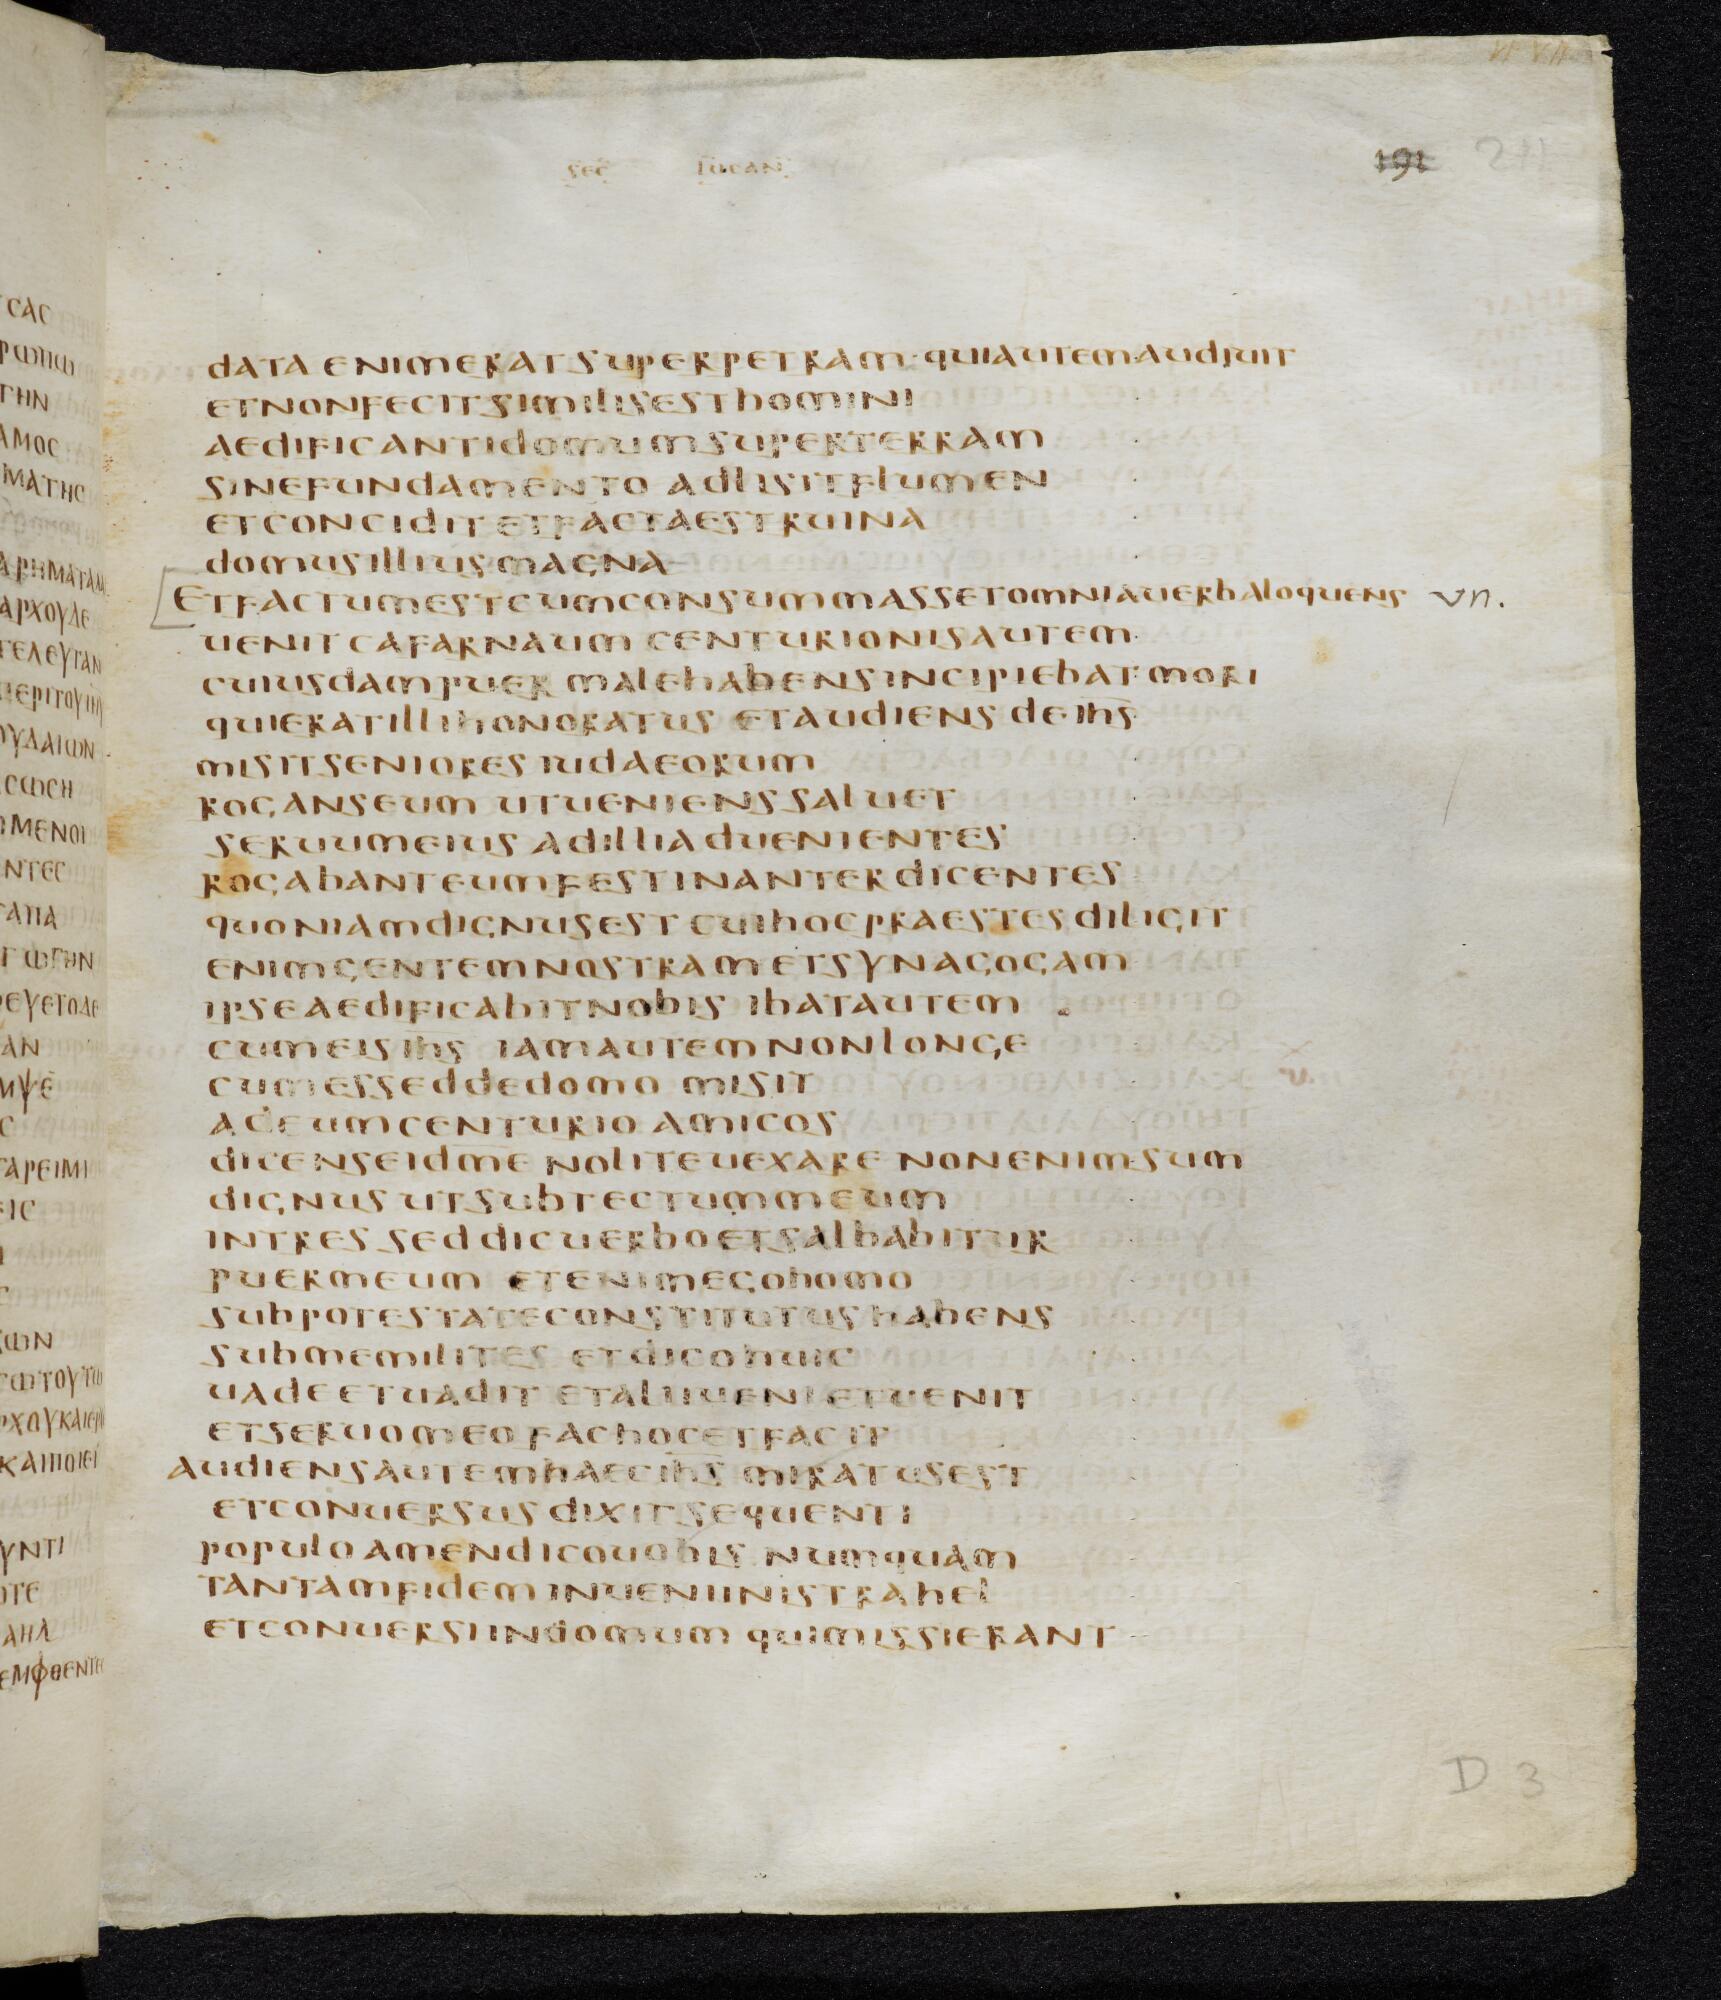 sec lucan
191 211
data enimeratsuperpetram·quiautem·audiuit
etnonfecitsimilisesthomini
aedificantidomumsuperterram
sinefundamento adlisitflumen
etconcidit etfactaestruina
domusilliusmagna
Etfactumestcumconsummassetomniauerbaloquens vn.
uenitcafarnaum centurionisautem
cuiusdampuer malehabensincipiebatmori
quieratillihonoratus etaudiens deihs
misitseniores iudaeorum
roganseum utuenienssaluet
seruumeius adilliaduenientes
rogabanteumfestinanterdicentes
quoniamdignusest cuihocpraestes diligit
enimgentemnostrametsynagogam
ipseaedificabitnobis ibatautem
cumeisihs iamautemnonlonge
cumesseddedomo misit
adeumcenturio amicos
dicenseidme noliteuexare nonenimsum
dignus utsubtectummeum
intres seddicuerboetsalbabitur
puermeum etenimegohomo
subpotestateconstitutushabens
submemilites etdicohuic
uadeetuadit etaliiuenietuenit
etseruomeofachocetfacit
audiensautemhaecihs miratusest
etconuersusdixitsequenti
populoamendicouobis numquam
tantamfideminueniinistrahel
etconuersiindomum quimissierant
D 3
CAC
ΡωΠω
ΓΗΝ
ΑΜΟC
ΜΑΤΗC
ΑΡΧΟΥΔΕ
ΤΕΛΕΥΤΑΝ
ΠΕΡΙΤΟΥΙΗΥ
ΟΥΔΑΙωΝ
CωCΗ
ΟΜΕΝΟΙ
ΝΤΕC
ΓΑΠΑ
ΓωΓΗΝ
ΡΕΥΕΤΟΔΕ
ΑΝ
ΜΨΕ
C
ΓΑΡΕΙΜΙ
ΕΙC
ωΝ
ΤωΤΟΥΤω
ΚΑΙΠΟΙΕΙ
ΥΝΤΙ
ΟΤΕ
ΑΗΛ
ΕΜΦΘΕΝΤΕ